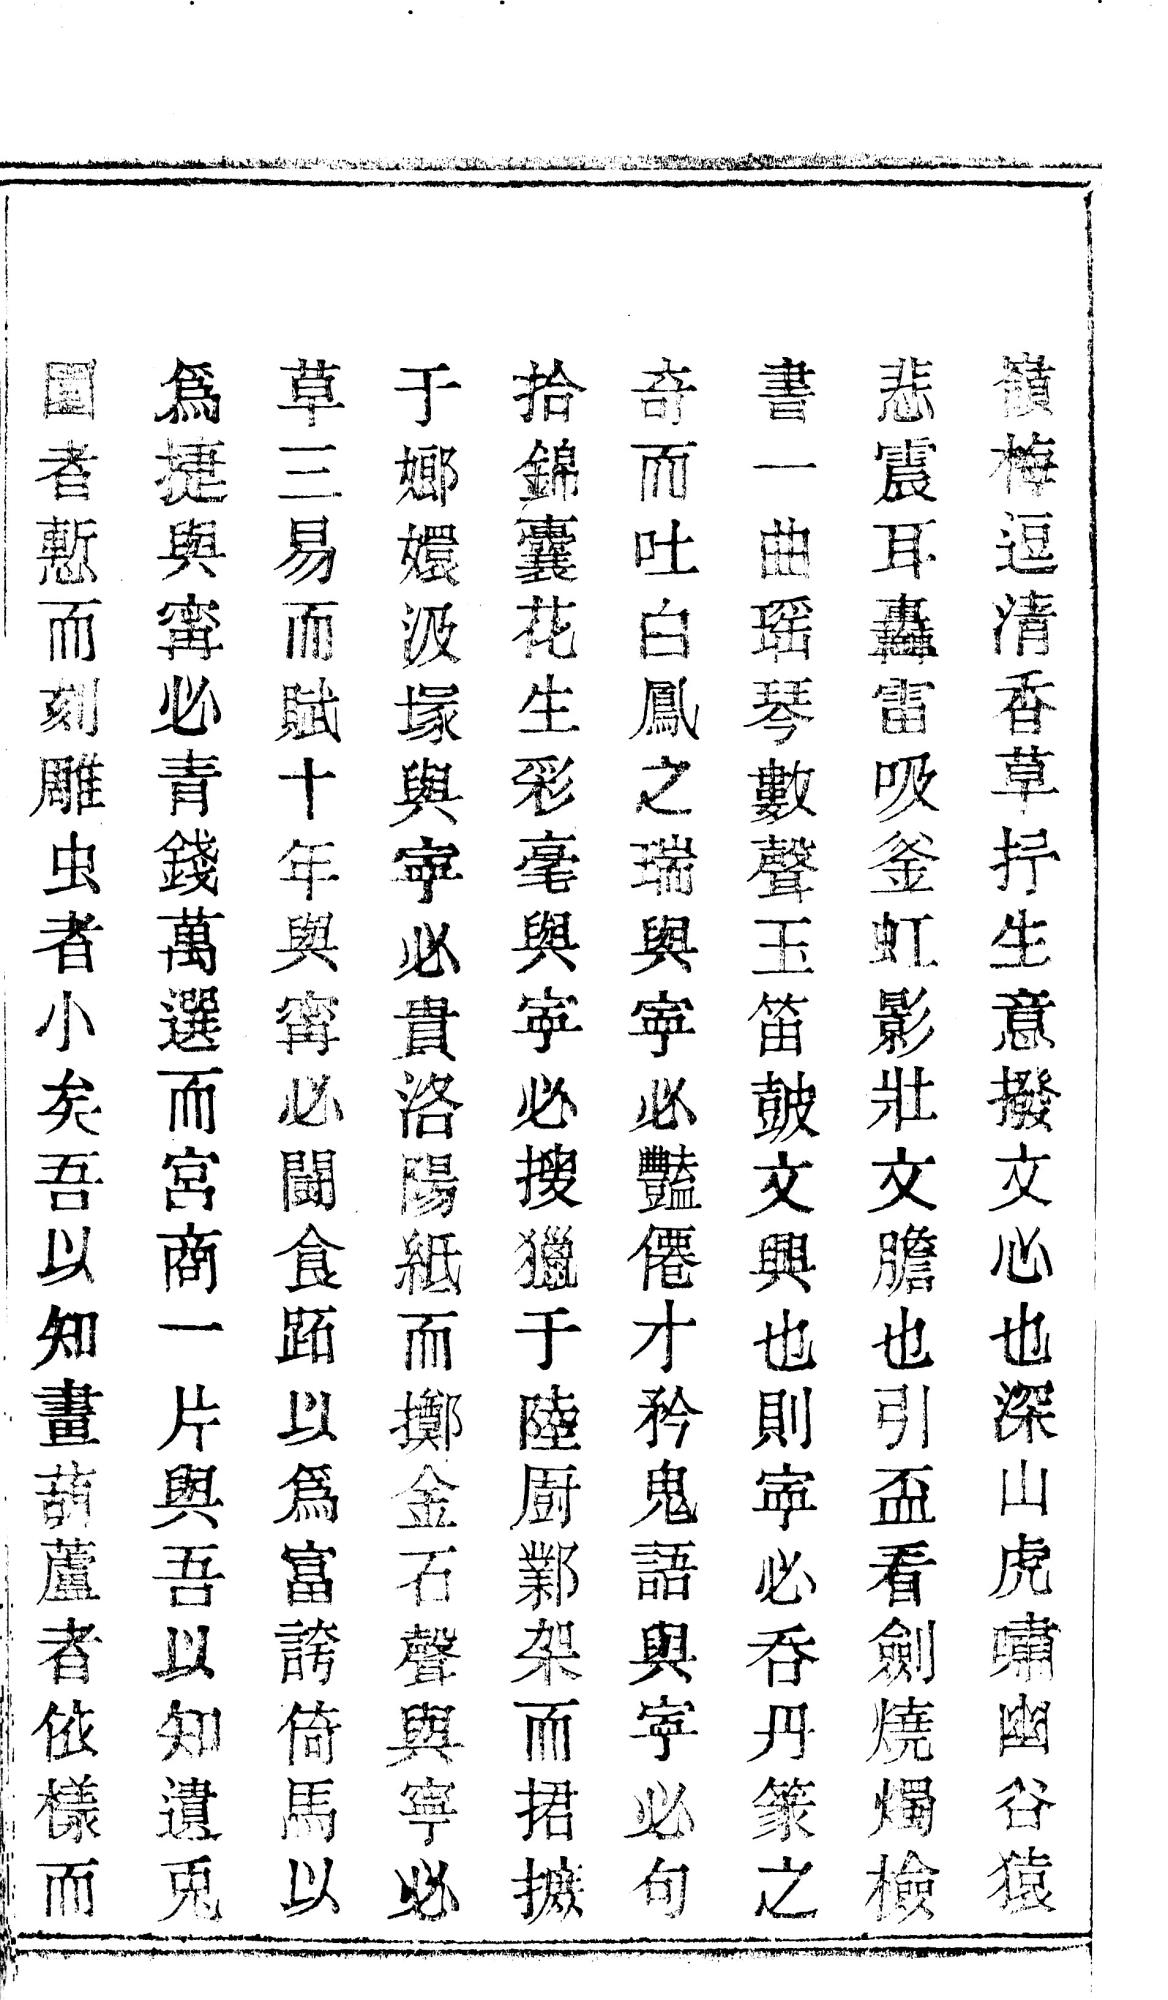 嶺梅逗清香草抒生意撥文心也深山虎嘯幽谷猿
悲震耳轟雷吸釜虹影壯文膽也引盃看劍燒燭檢
書一曲瑶琴數聲玉笛皷文興也則寕必吞丹篆之
奇而吐白鳳之瑞與寕必豔僊才矜鬼語與寕必句
拾錦囊花生彩毫與寕必搜獵于陸厨鄴架而捃摭
于嫏嬛汲塜與寕必貴洛陽紙而擲金石聲與寕必
草三易而賦十年與甯必鬪食跖以爲富誇倚馬以
爲捷與甯必青錢萬選而宮商一片與吾以知遺兎
者慙而刻雕虫者小矣吾以知畫葫蘆者依樣而